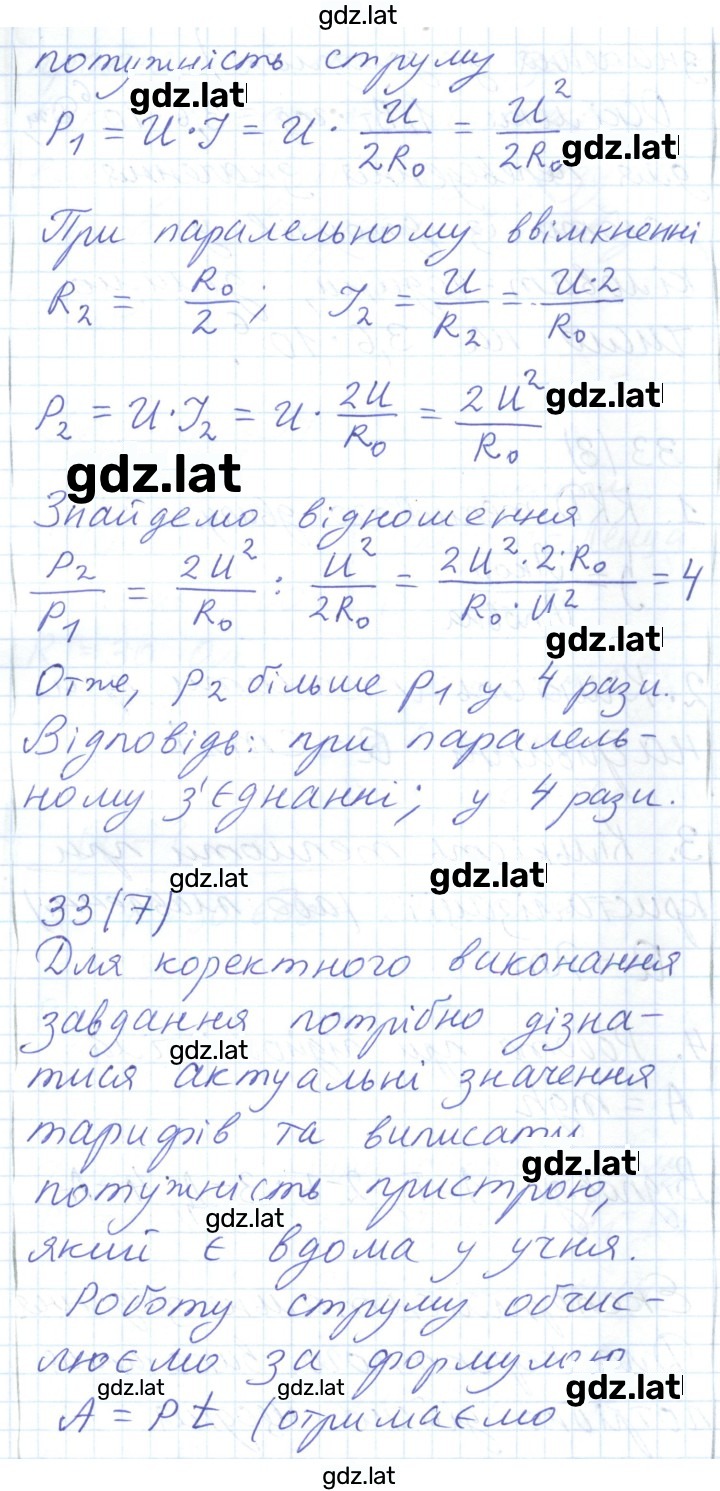 gdz.lat
потужність струму
gdz.lat
P₁ = U·I = U · U/2R₀ = U²/2R₀
gdz.lat
При паралельному ввімкненні
R₂ = R₀/2 ; I₂ = U/R₂ = U·2/R₀
P₂ = U·I₂ = U · 2U/R₀ = 2U²/R₀
gdz.lat
gdz.lat
Знайдемо відношення
P₂/P₁ = 2U²/R₀ : U²/2R₀ = 2U²·2·R₀/R₀·U² = 4
gdz.lat
Отже, P₂ більше P₁ у 4 рази.
Відповідь: при паралель-
ному з'єднанні; у 4 рази.
gdz.lat gdz.lat
33(7)
Для коректного виконання
завдання потрібно дізна-
gdz.lat
тися актуальні значення
тарифів та виписати
gdz.lat
потужність пристрою,
gdz.lat
який є вдома у учня.
Роботу струму обчис-
люємо за формулою
gdz.lat gdz.lat gdz.lat
A = Pt (отримаємо
gdz.lat